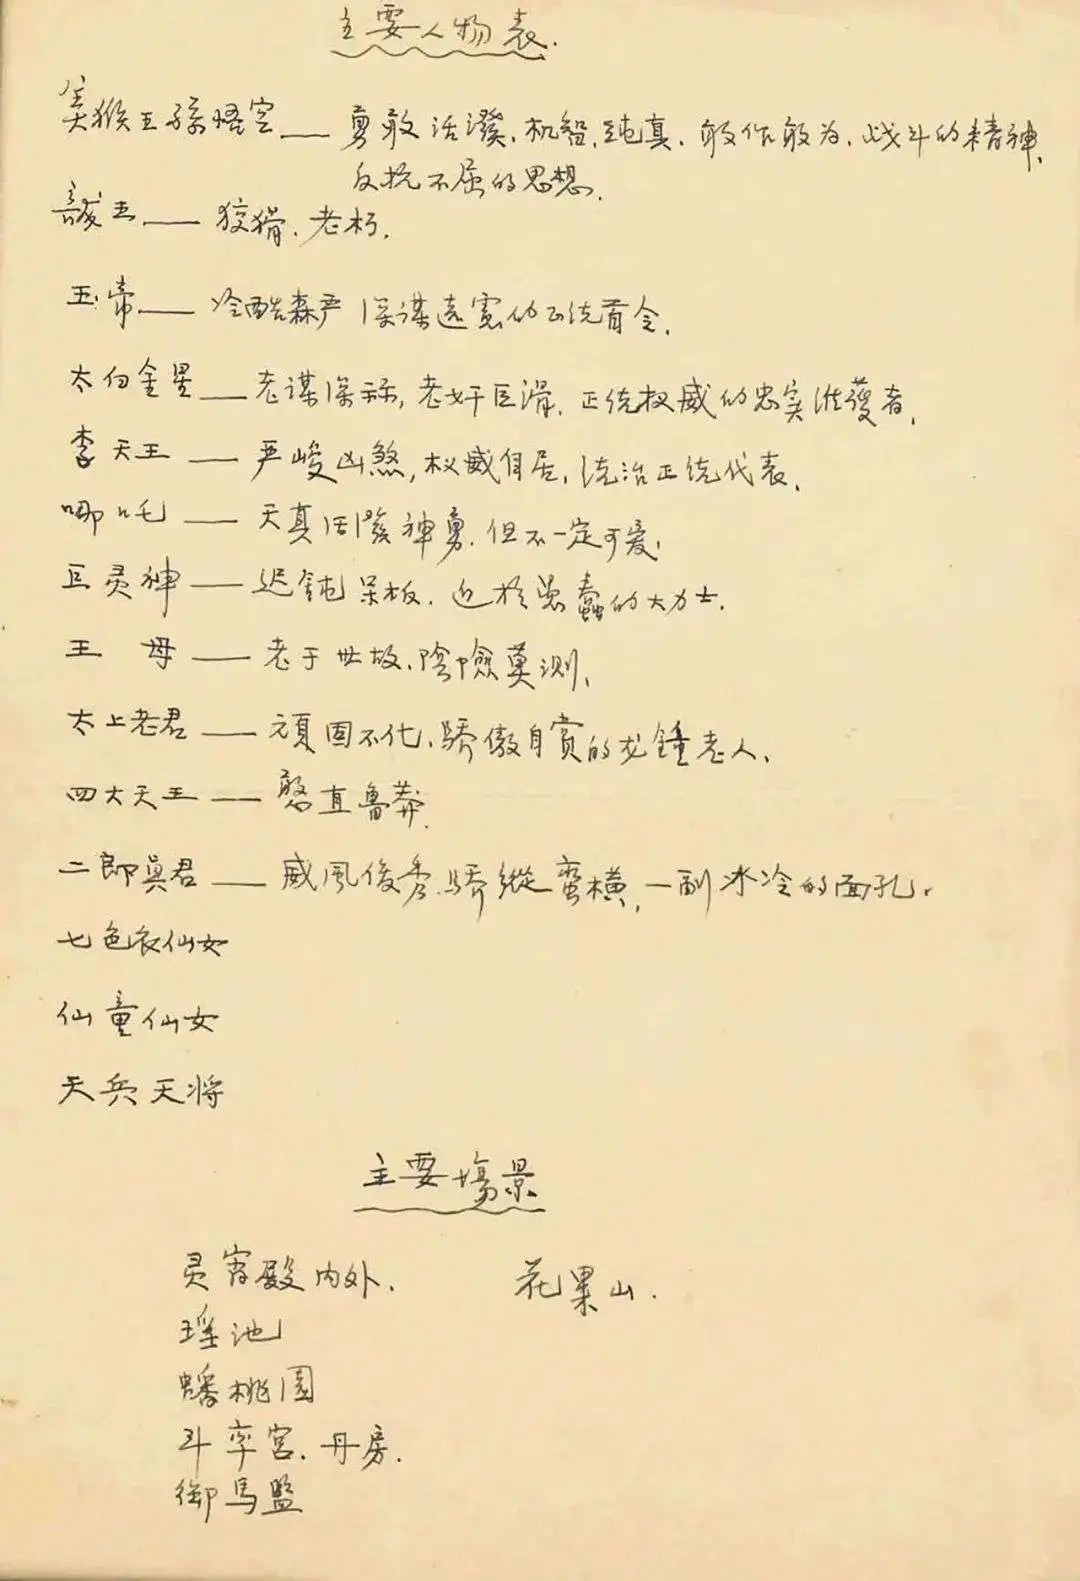 主要人物表.
美猴王孫悟空——勇敢活潑,机智,純真,敢作敢为,战斗的精神,
反抗不屈的思想.
龍王——狡猾,老朽.
玉帝——冷酷森严 深谋远慮的正统首令.
太白金星——老谋深祘,老奸巨滑,正统权威的忠实维護者,
李天王——严峻凶煞,权威自居,统治正统代表,
哪吒——天真活潑神勇,但不一定可爱,
巨灵神——迟鈍呆板,近於愚蠢的大力士.
王 母——老于世故,陰險莫测,
太上老君——頑固不化,驕傲自賞的龙鍾老人,
四大天王——憨直鲁莽.
二郎真君——威風俊秀,驕縱蛮横,一副冰冷的面孔.
七色衣仙女
仙童仙女
天兵天将
主要場景
灵宵殿内外. 花果山.
瑶池
蟠桃園
斗率宮.丹房.
御馬監